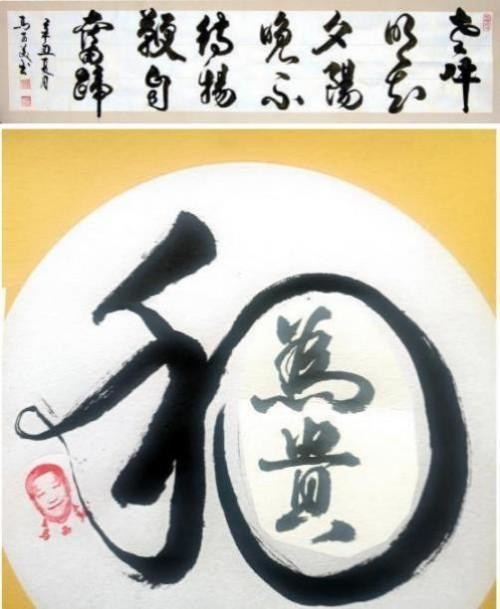 老牛
明知
夕陽
晚不
待揚
鞭自
奮蹄
辛丑夏月
和
為貴